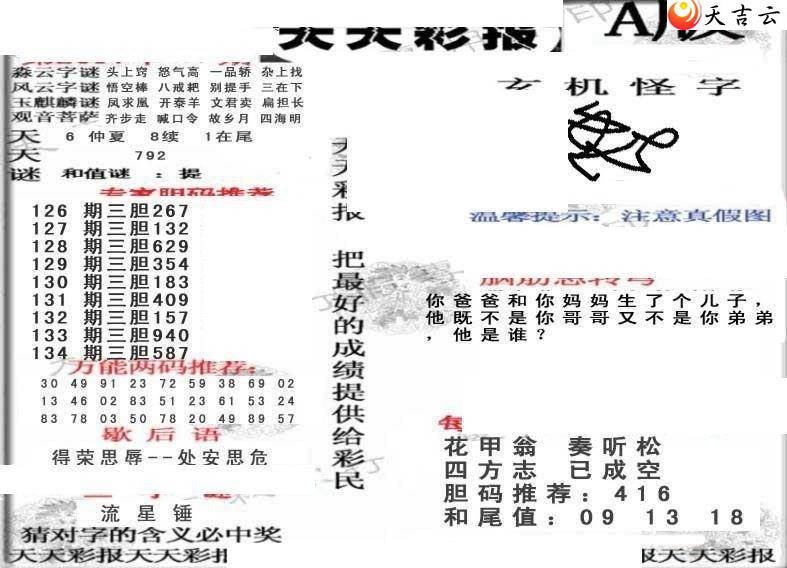 天天彩报
天吉云
淼云字谜 头上窍 怒气高 一品轿 杂上找
风云字谜 悟空棒 八戒耙 别提手 三在下
玉麒麟谜 凤求凰 开泰羊 文君卖 扁担长
观音菩萨 齐步走 喊口令 故乡月 四海明
天 6 仲夏 8续 1在尾
天 792
谜 和值谜 : 提
专家胆码推荐
126 期三胆267
127 期三胆132
128 期三胆629
129 期三胆354
130 期三胆183
131 期三胆409
132 期三胆157
133 期三胆940
134 期三胆587
万能两码推荐:
30 49 91 23 72 59 38 69 02
13 46 02 83 51 23 61 53 24
83 78 03 50 78 20 49 89 57
歇后语
得荣思辱--处安思危
流星锤
猜对字的含义必中奖
天天彩报天天彩报
天天彩报 把最好的成绩提供给彩民
玄机怪字
温馨提示: 注意真假图
脑筋急转弯
你爸爸和你妈妈生了个儿子，
他既不是你哥哥又不是你弟弟
，他是谁？
花甲翁 奏听松
四方志 已成空
胆码推荐: 416
和尾值: 09 13 18
报天天彩报